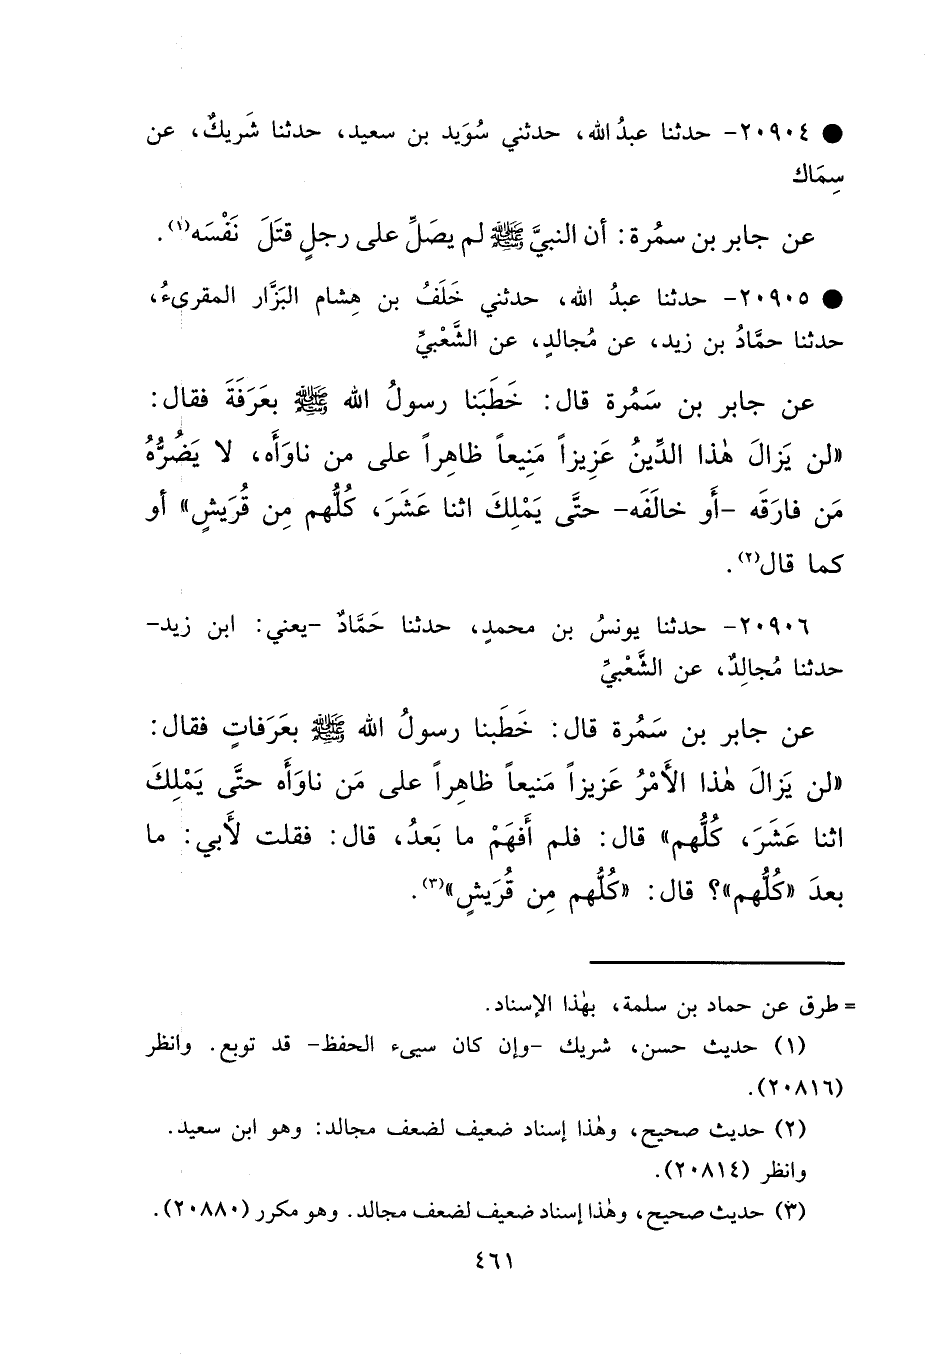 ● ٢٠٩٠٤- حدثنا عبدُ الله، حدثني سُوَيد بن سعيد، حدثنا شَريكٌ، عن
سِمَاك
عن جابر بن سمُرة: أن النبيَّ ﷺ لم يصَلِّ على رجلٍ قتَلَ نَفْسَه(١).
● ٢٠٩٠٥- حدثنا عبدُ الله، حدثني خَلَفُ بن هِشام البَزَّار المقرىءُ،
حدثنا حمَّادُ بن زيد، عن مُجالدٍ، عن الشَّعْبيِّ
عن جابر بن سَمُرة قال: خَطَبَنا رسولُ الله ﷺ بعَرَفَةَ فقال:
«لن يَزالَ هٰذا الدِّينُ عَزِيزاً مَنِيعاً ظاهِراً على من ناوَأَه، لا يَضُرُّهُ
مَن فارَقَه -أَو خالَفَه- حتَّى يَمْلِكَ اثنا عَشَرَ، كُلُّهم مِن قُرَيشٍ» أو
كما قال(٢).
٢٠٩٠٦- حدثنا يونسُ بن محمدٍ، حدثنا حَمَّادٌ -يعني: ابن زيد-
حدثنا مُجالِدٌ، عن الشَّعْبيِّ
عن جابر بن سَمُرة قال: خَطَبنا رسولُ الله ﷺ بعَرَفاتٍ فقال:
«لن يَزالَ هٰذا الأَمْرُ عَزيزاً مَنيعاً ظاهِراً على مَن ناوَأَه حتَّى يَمْلِكَ
اثنا عَشَرَ، كُلُّهم» قال: فلم أَفهَمْ ما بَعدُ، قال: فقلت لأَبي: ما
بعدَ «كُلُّهم»؟ قال: «كُلُّهم مِن قُرَيشٍ»(٣).
= طرق عن حماد بن سلمة، بهٰذا الإسناد.
(١) حديث حسن، شريك -وإن كان سيىء الحفظ- قد توبع. وانظر
(٢٠٨١٦).
(٢) حديث صحيح، وهٰذا إسناد ضعيف لضعف مجالد: وهو ابن سعيد.
وانظر (٢٠٨١٤).
(٣) حديث صحيح، وهٰذا إسناد ضعيف لضعف مجالد. وهو مكرر (٢٠٨٨٠).
٤٦١